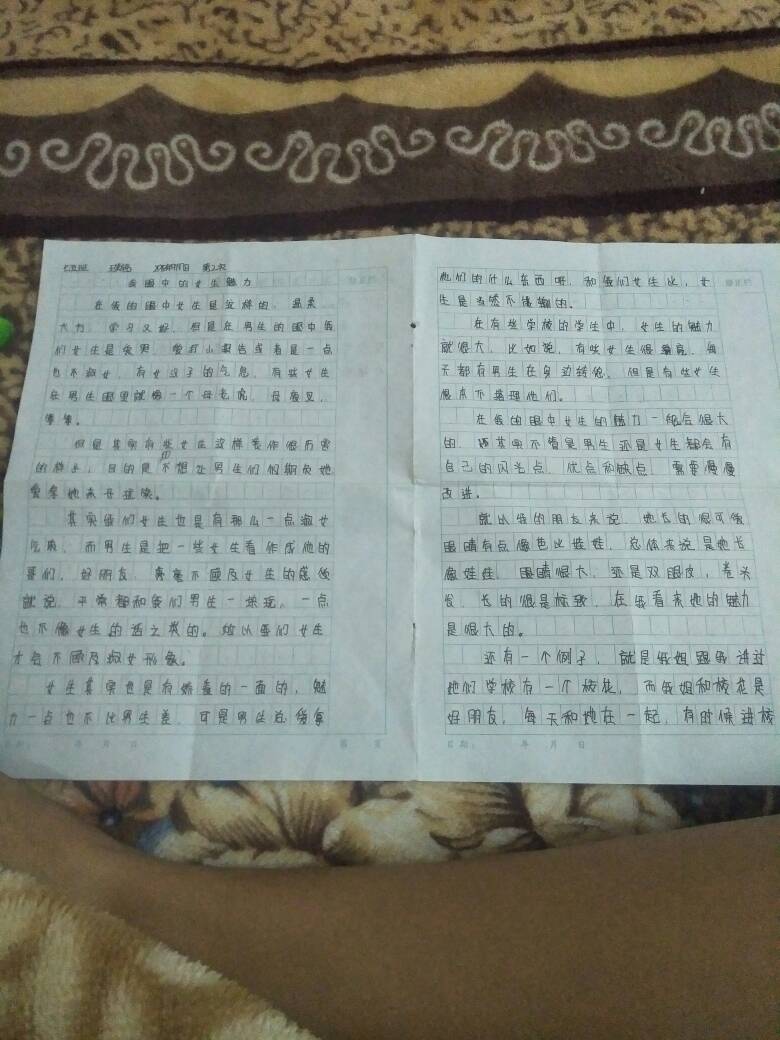 第2次
我眼中的女生魅力
在我的眼中女生是这样的，温柔
大方，学习又好，但是在男生的眼中我
们女生是臭男，爱打小报告或者是一点
也不淑女，有女汉子的气息，有些女生
在男生眼里就像一个母老虎，母夜叉，
等等。
但是其实有些女生这样表作很历害
的样子，目的是不想让男生们欺负她
爱拿她来开玩笑。
其实我们女生也是有那么一点淑女
气质，而男生是把一些女生看作成他的
哥们，好朋友，毫毫不顾及女生的感受
就说，平常都和我们男生一块玩，一点
也不像女生的话之类的。所以我们女生
才会不顾及淑女形象。
女生其实也是有娇羞的一面的，魅
力一点也不比男生差，可是男生总爱拿
他们的什么东西呀，和我们女生比，女
生是当然不接触的。
在有些学校的学生中，女生的魅力
就很大，比如说，有些女生很漂亮，每
天都有男生在身边转悠，但是有些女生
根本不搭理他们。
在我的眼中女生的魅力一般会很大
的，而其实不管是男生还是女生都会有
自己的闪光点，优点和缺点，需要慢慢
改进。
就以我的朋友来说，她长的很可爱
眼睛有点像芭比娃娃，总体来说是她长
像娃娃，眼睛很大，还是双眼皮，卷头
发，长的很是标致，在我看来她的魅力
是很大的。
还有一个例子，就是我姐跟我讲过
她们学校有一个校花，而我姐和校花是
好朋友，每天和她在一起，有时候进校
日期： 年 月 日 第 页
日期： 年 月 日